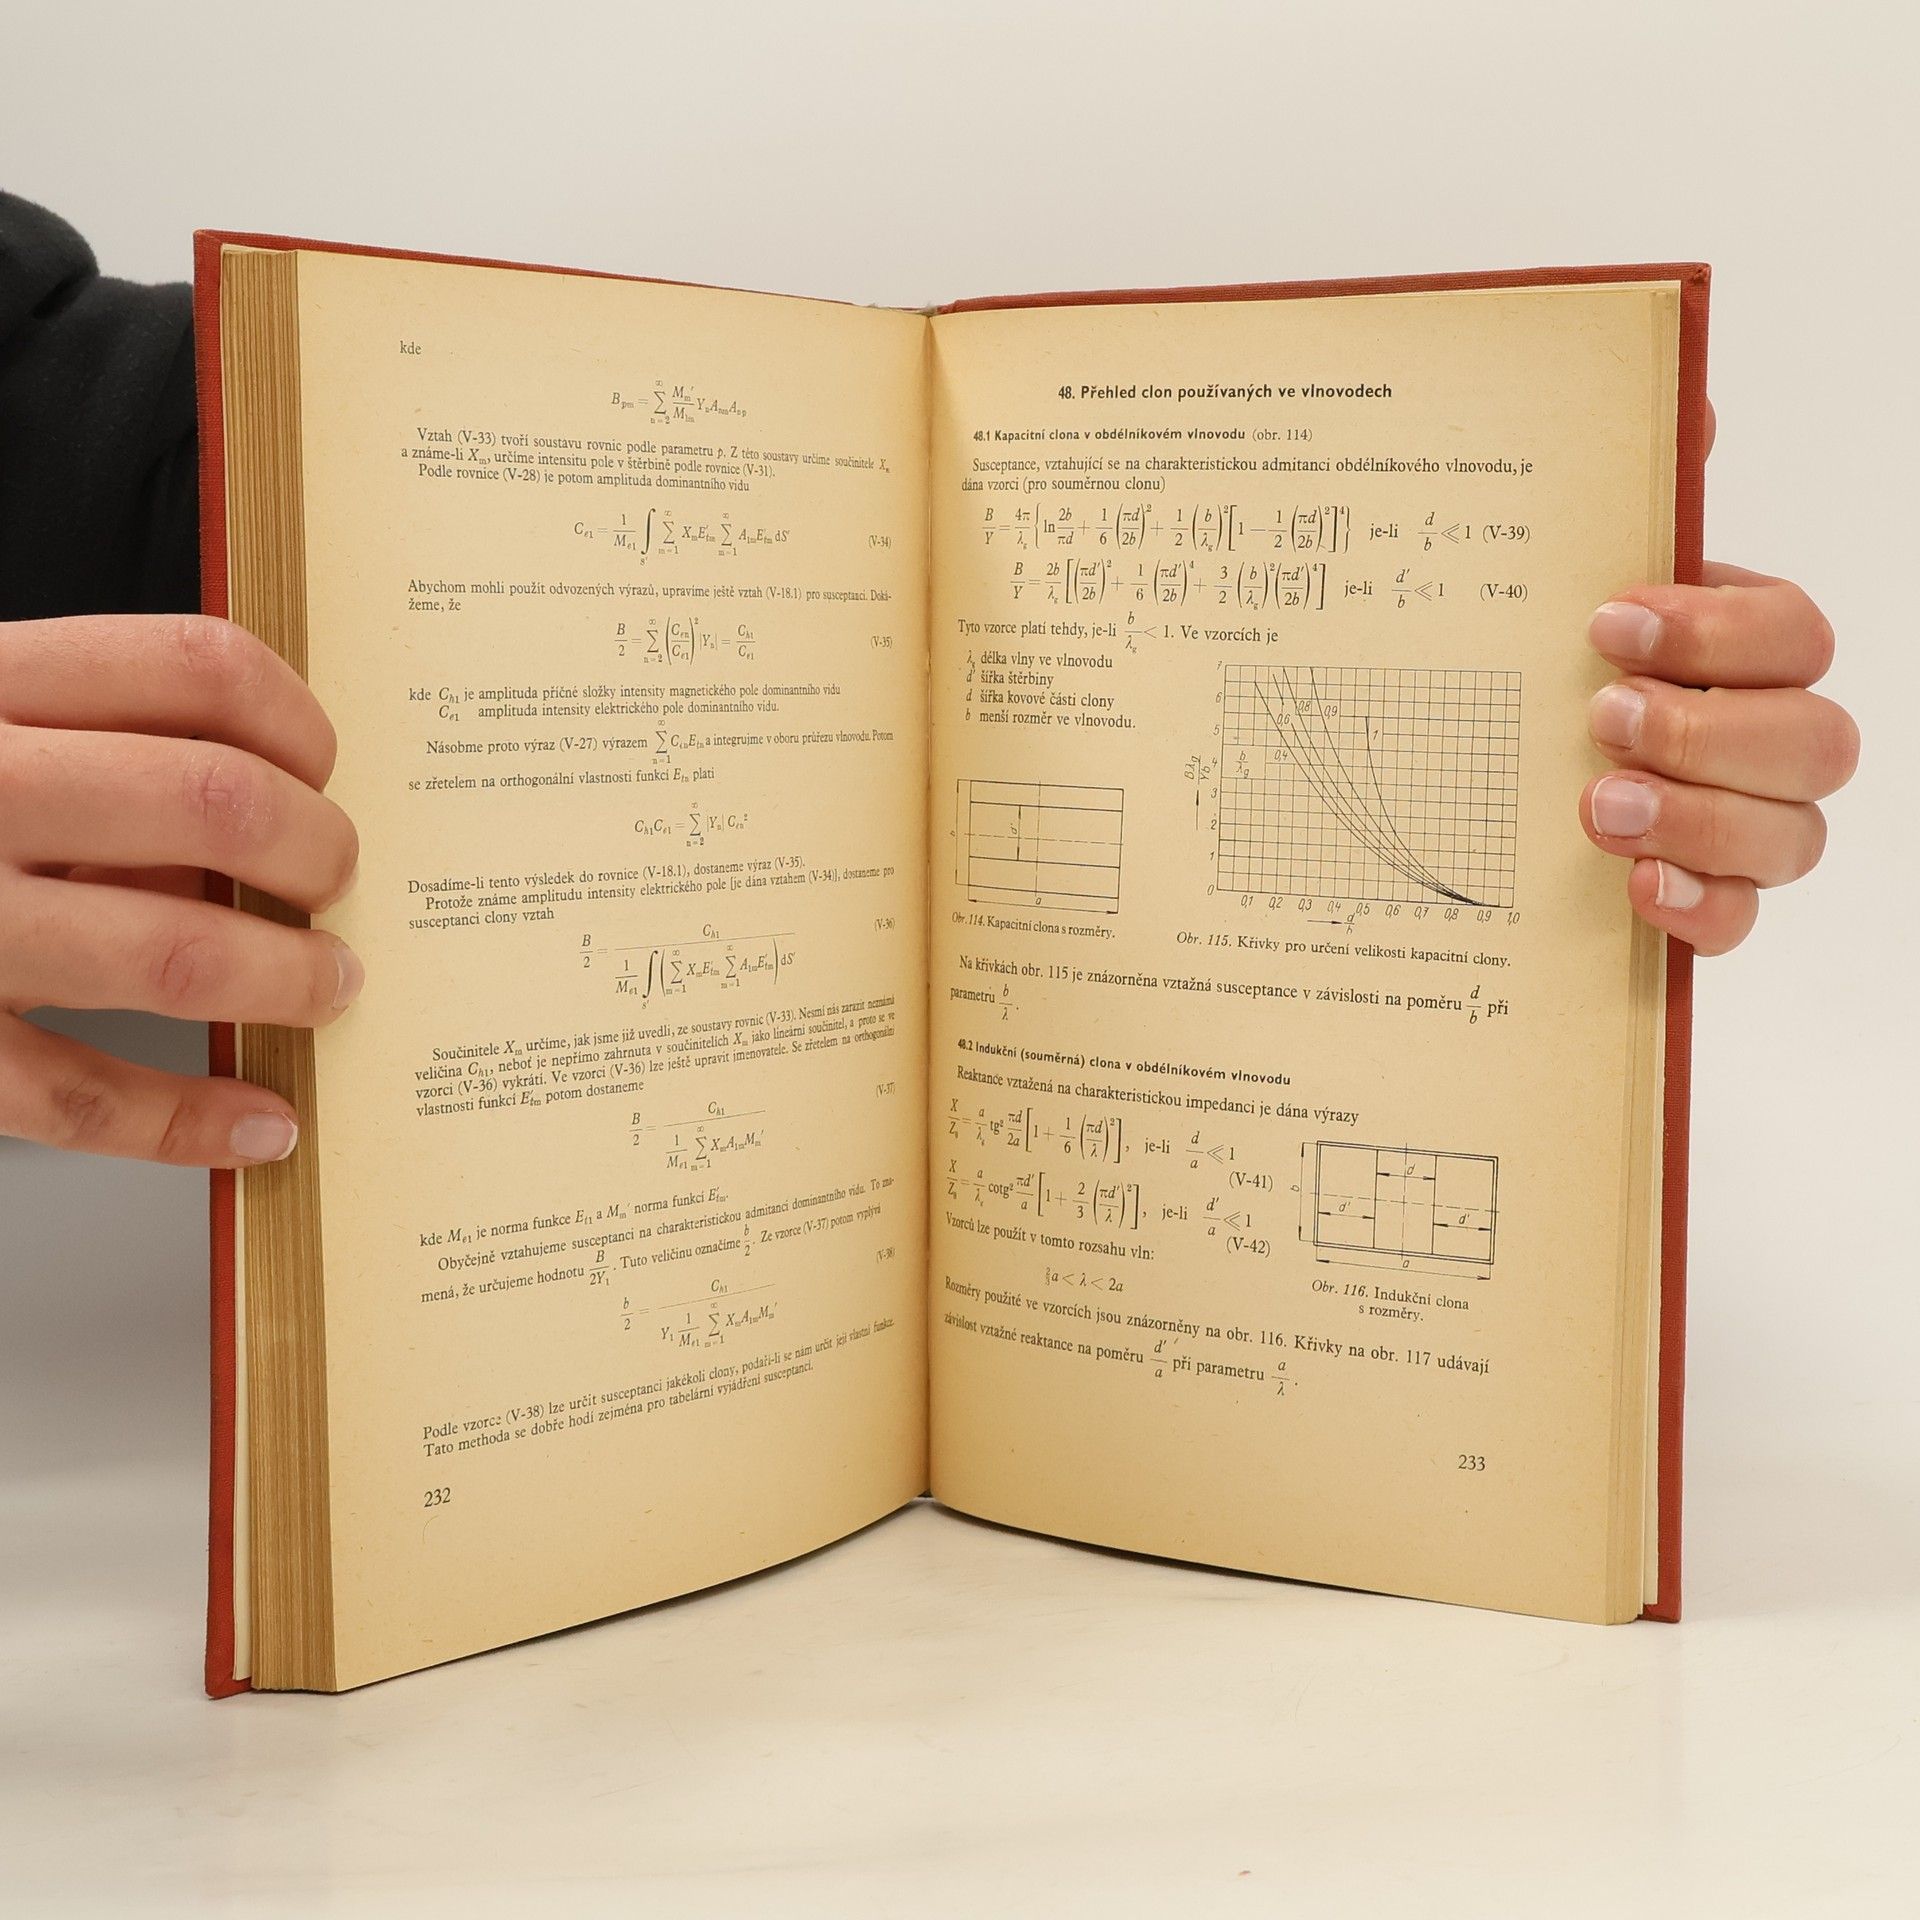 kde
B_pm = ∑_{n=2}^{∞} M_m′/M_1m Y_n A_nm A_np
Vztah (V-33) tvoří soustavu rovnic podle parametru p. Z této soustavy určíme součinitele X_m
a známe-li X_m, určíme intensitu pole v štěrbině podle rovnice (V-31).
Podle rovnice (V-28) je potom amplituda dominantního vidu
C_e1 = 1/M_e1 ∫_{s′} ∑_{m=1}^{∞} X_m E′_tm ∑_{m=1}^{∞} A_1m E′_tm dS′ (V-34)
Abychom mohli použít odvozených výrazů, upravíme ještě vztah (V-18.1) pro susceptanci. Doká-
žeme, že
B/2 = ∑_{n=2}^{∞} (C_en/C_e1)² |Y_n| = C_h1/C_e1 (V-35)
kde C_h1 je amplituda příčné složky intensity magnetického pole dominantního vidu
C_e1 amplituda intensity elektrického pole dominantního vidu.
Násobme proto výraz (V-27) výrazem ∑_{n=1}^{∞} C_en E_tn a integrujme v oboru průřezu vlnovodu. Potom
se zřetelem na orthogonální vlastnosti funkcí E_tn platí
C_h1 C_e1 = ∑_{n=2}^{∞} |Y_n| C_en²
Dosadíme-li tento výsledek do rovnice (V-18.1), dostaneme výraz (V-35).
Protože známe amplitudu intensity elektrického pole [je dána vztahem (V-34)], dostaneme pro
susceptanci clony vztah
B/2 = C_h1 / (1/M_e1 ∫_{s′} (∑_{m=1}^{∞} X_m E′_tm ∑_{m=1}^{∞} A_1m E′_tm) dS′) (V-36)
Součinitele X_m určíme, jak jsme již uvedli, ze soustavy rovnic (V-33). Nesmí nás zarazit neznámá
veličina C_h1, neboť je nepřímo zahrnuta v součinitelích X_m jako lineární součinitel, a proto se ve
vzorci (V-36) vykrátí. Ve vzorci (V-36) lze ještě upravit jmenovatele. Se zřetelem na orthogonální
vlastnosti funkcí E′_tm potom dostaneme
B/2 = C_h1 / (1/M_e1 ∑_{m=1}^{∞} X_m A_1m M_m′) (V-37)
kde M_e1 je norma funkce E_t1 a M_m′ norma funkcí E′_tm.
Obyčejně vztahujeme susceptanci na charakteristickou admitanci dominantního vidu. To zna-
mená, že určujeme hodnotu B/2Y_1. Tuto veličinu označíme b/2. Ze vzorce (V-37) potom vyplývá
b/2 = C_h1 / (Y_1 1/M_e1 ∑_{m=1}^{∞} X_m A_1m M_m′) (V-38)
Podle vzorce (V-38) lze určit susceptanci jakékoli clony, podaří-li se nám určit její vlastní funkce.
Tato methoda se dobře hodí zejména pro tabelární vyjádření susceptancí.
232
48. Přehled clon používaných ve vlnovodech
48.1 Kapacitní clona v obdélníkovém vlnovodu (obr. 114)
Susceptance, vztahující se na charakteristickou admitanci obdélníkového vlnovodu, je
dána vzorci (pro souměrnou clonu)
B/Y = 4π/λ_g {ln 2b/πd + 1/6 (πd/2b)² + 1/2 (b/λ_g)² [1 − 1/2 (πd/2b)²]⁴} je-li d/b ≪ 1 (V-39)
B/Y = 2b/λ_g [(πd′/2b)² + 1/6 (πd′/2b)⁴ + 3/2 (b/λ_g)² (πd′/2b)⁴] je-li d′/b ≪ 1 (V-40)
Tyto vzorce platí tehdy, je-li b/λ_g < 1. Ve vzorcích je
λ_g délka vlny ve vlnovodu
d′ šířka štěrbiny
d šířka kovové části clony
b menší rozměr ve vlnovodu.
b
d′
a
Obr. 114. Kapacitní clona s rozměry.
Bλg/Yb
7
6
5
4
3
2
1
0
0,4 0,6 0,8 0,9 1
b/λg
0,1 0,2 0,3 0,4 0,5 0,6 0,7 0,8 0,9 1,0
d/b
Obr. 115. Křivky pro určení velikosti kapacitní clony.
Na křivkách obr. 115 je znázorněna vztažná susceptance v závislosti na poměru d/b při
parametru b/λ.
48.2 Indukční (souměrná) clona v obdélníkovém vlnovodu
Reaktance vztažená na charakteristickou impedanci je dána výrazy
X/Z_0 = a/λ_g tg² πd/2a [1 + 1/6 (πd/λ)²], je-li d/a ≪ 1
(V-41)
X/Z_0 = a/λ_g cotg² πd′/a [1 + 2/3 (πd′/λ)²], je-li d′/a ≪ 1
(V-42)
Vzorců lze použít v tomto rozsahu vln:
⅔a < λ < 2a
b
d
d′ d′
a
Obr. 116. Indukční clona
s rozměry.
Rozměry použité ve vzorcích jsou znázorněny na obr. 116. Křivky na obr. 117 udávají
závislost vztažné reaktance na poměru d′/a při parametru a/λ.
233